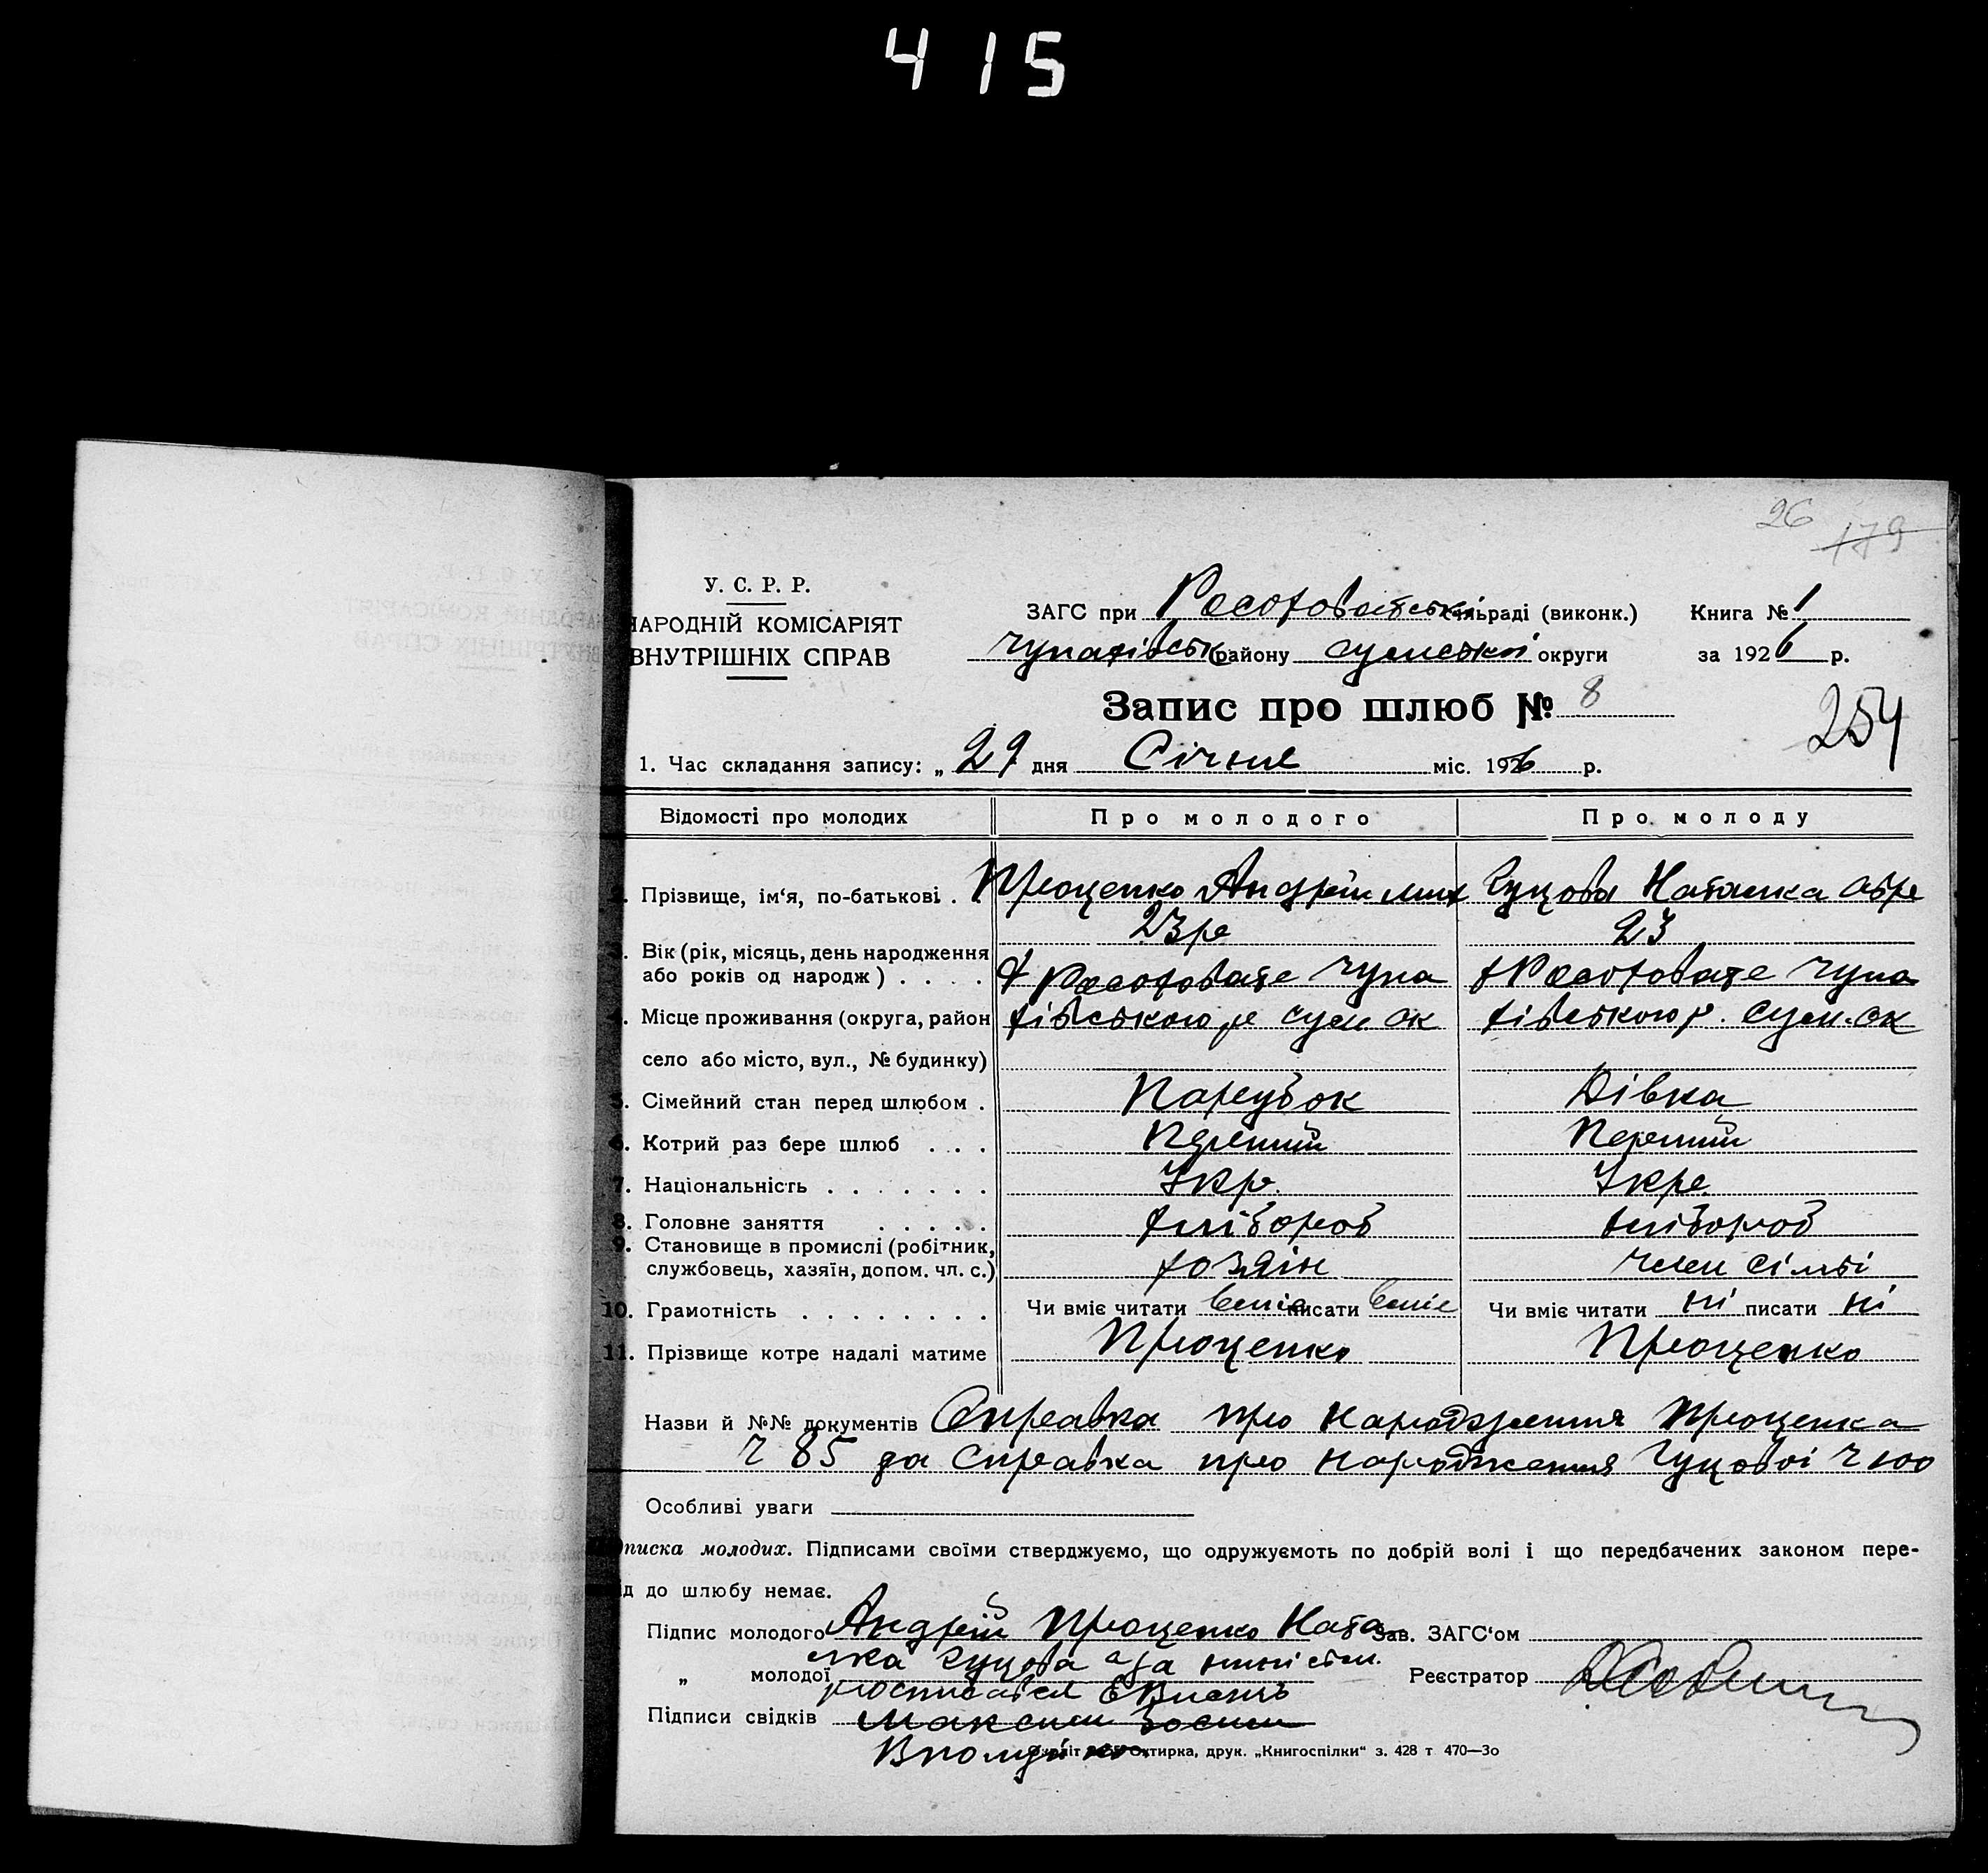 415
26
179
У. С. Р. Р.
НАРОДНІЙ КОМІСАРІЯТ
ВНУТРІШНІХ СПРАВ
ЗАГС при Росоховатській сільраді (виконк.) Книга № 1
Чупахівськ району Сумської округи за 1926 р.
Запис про шлюб № 8
254
1. Час складання запису: „ 29 дня Січня міс. 1926 р.
Відомості про молодих Про молодого Про молоду
2. Прізвище, ім‘я, по-батькові . Проценко Андрій Мих Гуцова Наталка
3. Вік (рік, місяць, день народження або років од народж) . . . . 23 р 23
4. Місце проживання (округа, район село або місто, вул., № будинку) х Росоховате Чупахівського р Сум ок х Росоховате Чупахівського р. Сум. ок
5. Сімейний стан перед шлюбом . Парубок Дівка
6. Котрий раз бере шлюб . . . Перший Перший
7. Національність . . . . . . . Укр. Укр.
8. Головне заняття . . . . . хлібороб хлібороб
9. Становище в промислі (робітник, службовець, хазяїн, допом. чл. с.) хозяін член сімьі
10. Грамотність . . . . . . . . Чи вміє читати вміє писати вміє Чи вміє читати ні писати ні
11. Прізвище котре надалі матиме Проценко Проценко
Назви й №№ документів Справка про народження Проценка
Ч 85 да Справка про народження Гуцовоі Ч 100
Особливі уваги
Підписка молодих. Підписами своїми стверджуємо, що одружуємоть по добрій волі і що передбачених законом пере-
від до шлюбу немає.
Підпис молодого Андрій Проценко Ната Зав. ЗАГС‘ом
„ молодої лка Гуцова а за Реєстратор
росписався
Підписи свідків Максим
Охтирка, друк. „Книгоспілки“ з. 428 т 470—3о